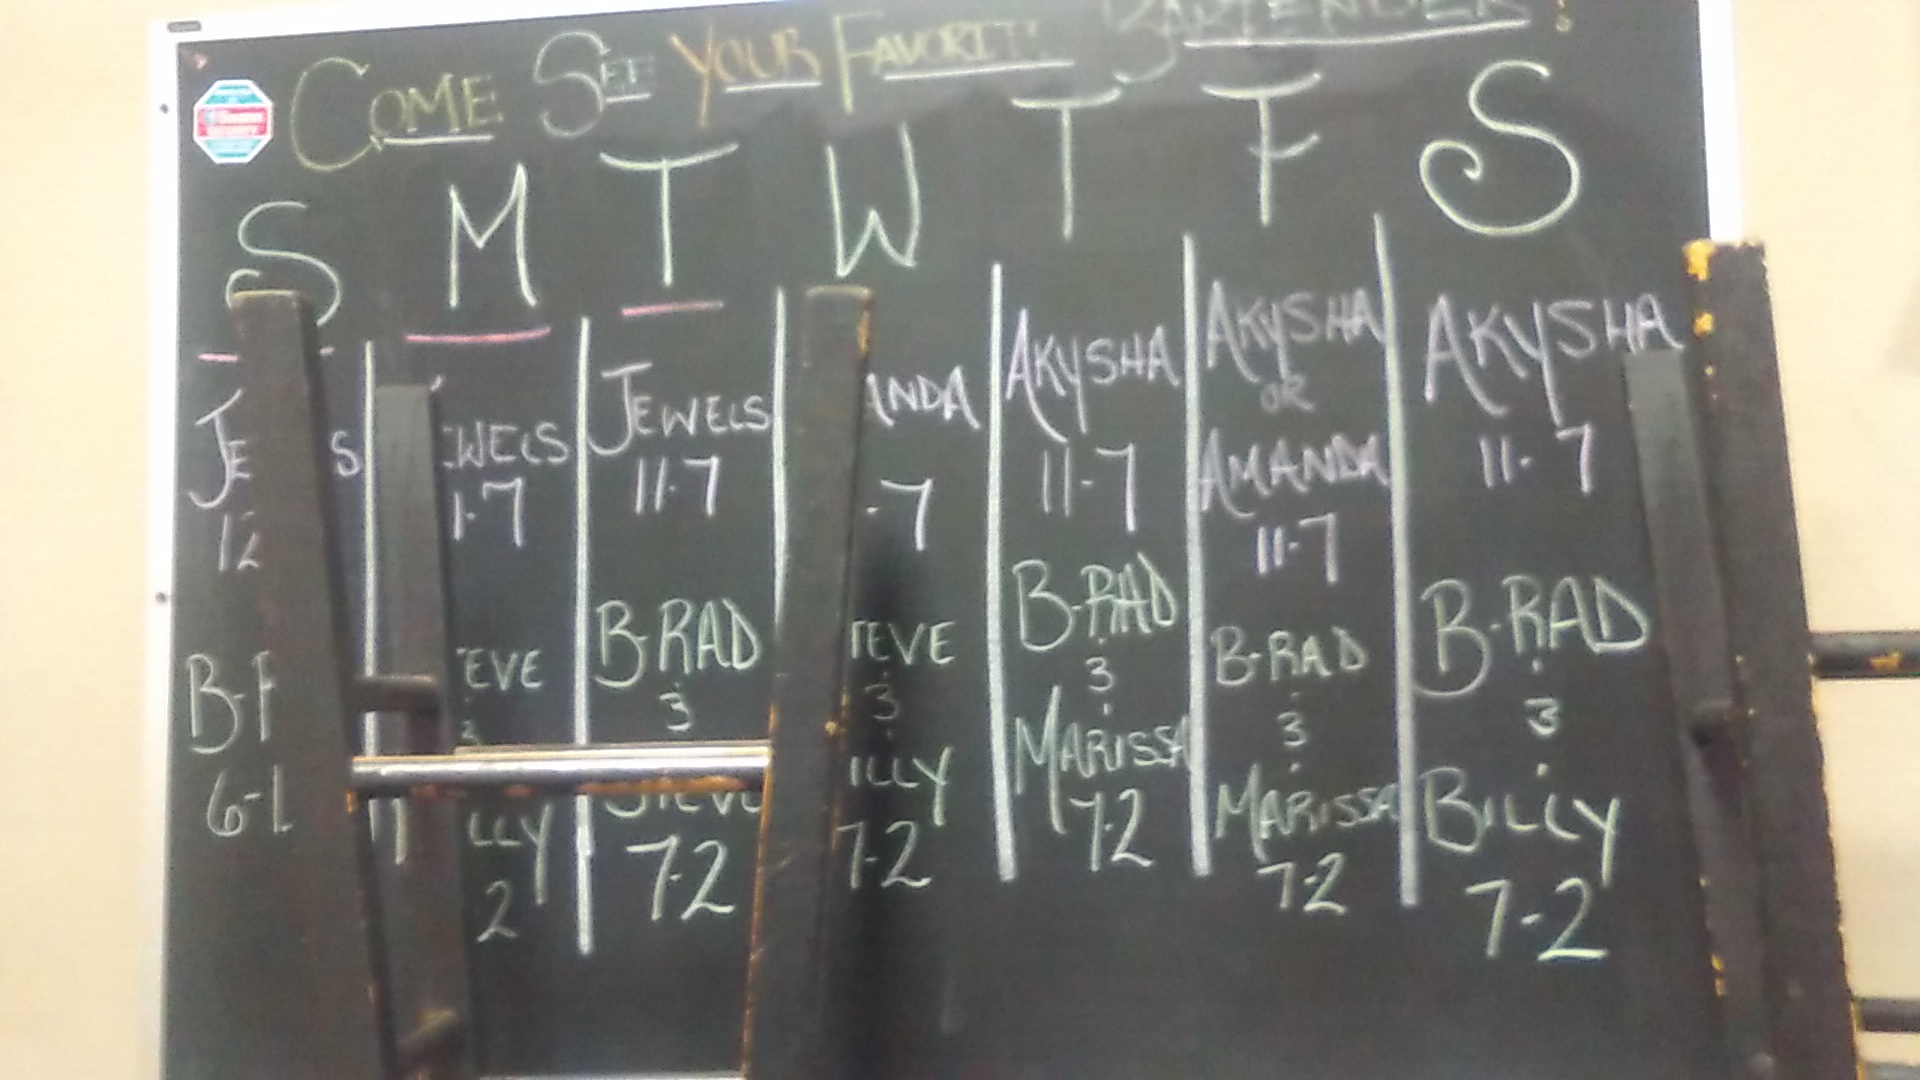 COME SEE YOUR FAVORITE BARTENDER!
S M T W T F S
JE S
12
B-
6-
EWELS
1-7
EVE
LLY
2
JEWELS
11-7
B-RAD
3
STEVE
7-2
ANDA
-7
TEVE
3
ILLY
7-2
AKYSHA
11-7
B-RAD
3
MARISSA
7-2
AKYSHA
OR
AMANDA
11-7
B-RAD
3
MARISSA
7-2
AKYSHA
11-7
B-RAD
3
BILLY
7-2